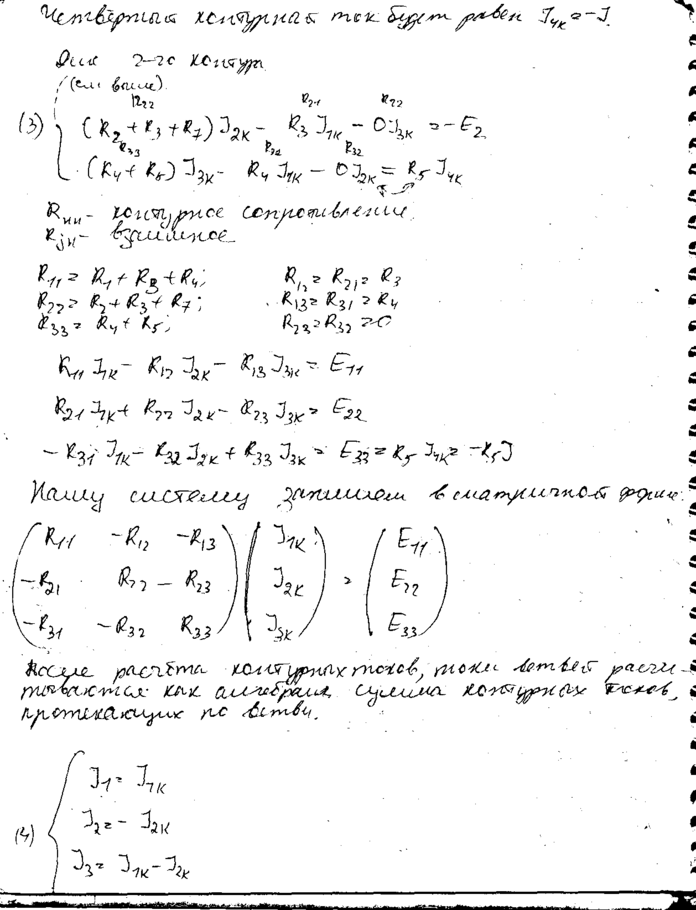 Четвёртый контурный ток будет равен J₄ₖ=-J.
Для 2-го контура
(см выше).
R₂₂ R₂₁ R₂₂
(3) (R₂+R₃+R₇)J₂ₖ - R₃J₁ₖ - 0J₃ₖ = -E₂
R₃₃ R₃₂
(R₄+R₅)J₃ₖ - R₄J₁ₖ - 0J₂ₖ = R₅J₄ₖ
Rₙₙ - контурное сопротивление.
Rⱼₙ - взаимное
R₁₁ = R₁ + R₃ + R₄; R₁₂ = R₂₁ = R₃
R₂₂ = R₂ + R₃ + R₇; R₁₃ = R₃₁ = R₄
R₃₃ = R₄ + R₅; R₂₃ = R₃₂ = 0
R₁₁J₁ₖ - R₁₂J₂ₖ - R₁₃J₃ₖ = E₁₁
R₂₁J₁ₖ + R₂₂J₂ₖ - R₂₃J₃ₖ = E₂₂
-R₃₁J₁ₖ - R₃₂J₂ₖ + R₃₃J₃ₖ = E₃₃ = R₅J₄ₖ = -R₅J
Нашу систему запишем в матричной форме.
R₁₁ -R₁₂ -R₁₃ J₁ₖ E₁₁
-R₂₁ R₂₂ -R₂₃ J₂ₖ = E₂₂
-R₃₁ -R₃₂ R₃₃ J₃ₖ E₃₃
После расчёта контурных токов, токи ветвей рассчи-
тываются как алгебраич. сумма контурных токов,
протекающих по ветви.
J₁ = J₁ₖ
(4) J₂ = -J₂ₖ
J₃ = J₁ₖ - J₂ₖ